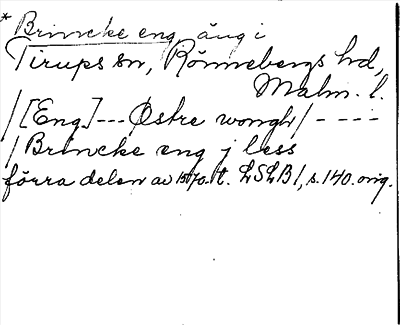 * Brincke eng, äng i
Tirups sn, Rönnebergs hd,
Malm. l.
/[Eng]--- Østre wongh/ - - - -
/ Brincke eng j less
förra delen av 1570-t. LSLB1, s. 140. orig.